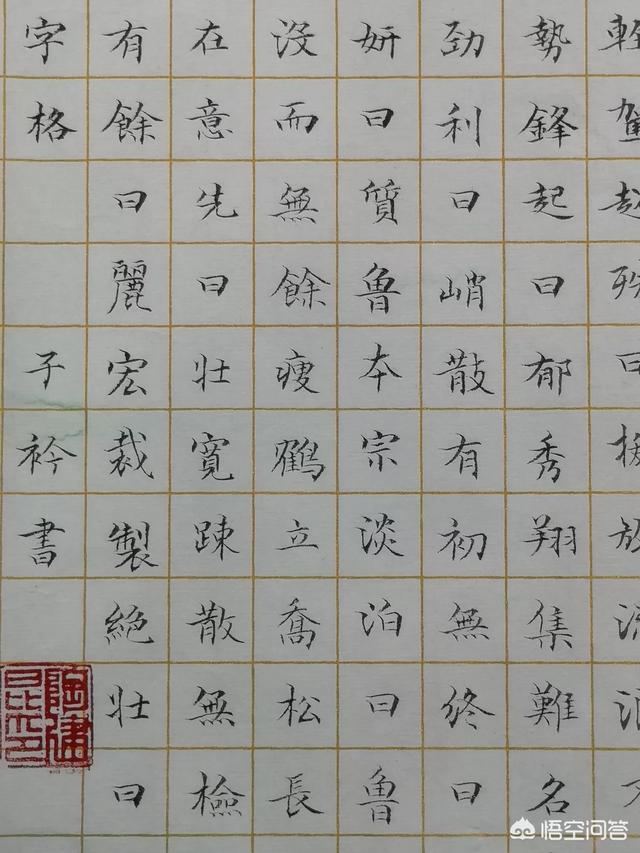 勢鋒起曰郁秀翔集難名
劲利曰峭散有初無終曰
妍曰質魯本宗淡泊曰魯
沒而無餘瘦鶴立喬松長
在意先曰壯寬踈散無檢
有餘曰麗宏裁製絕壯曰
字格 子衿書
悟空问答